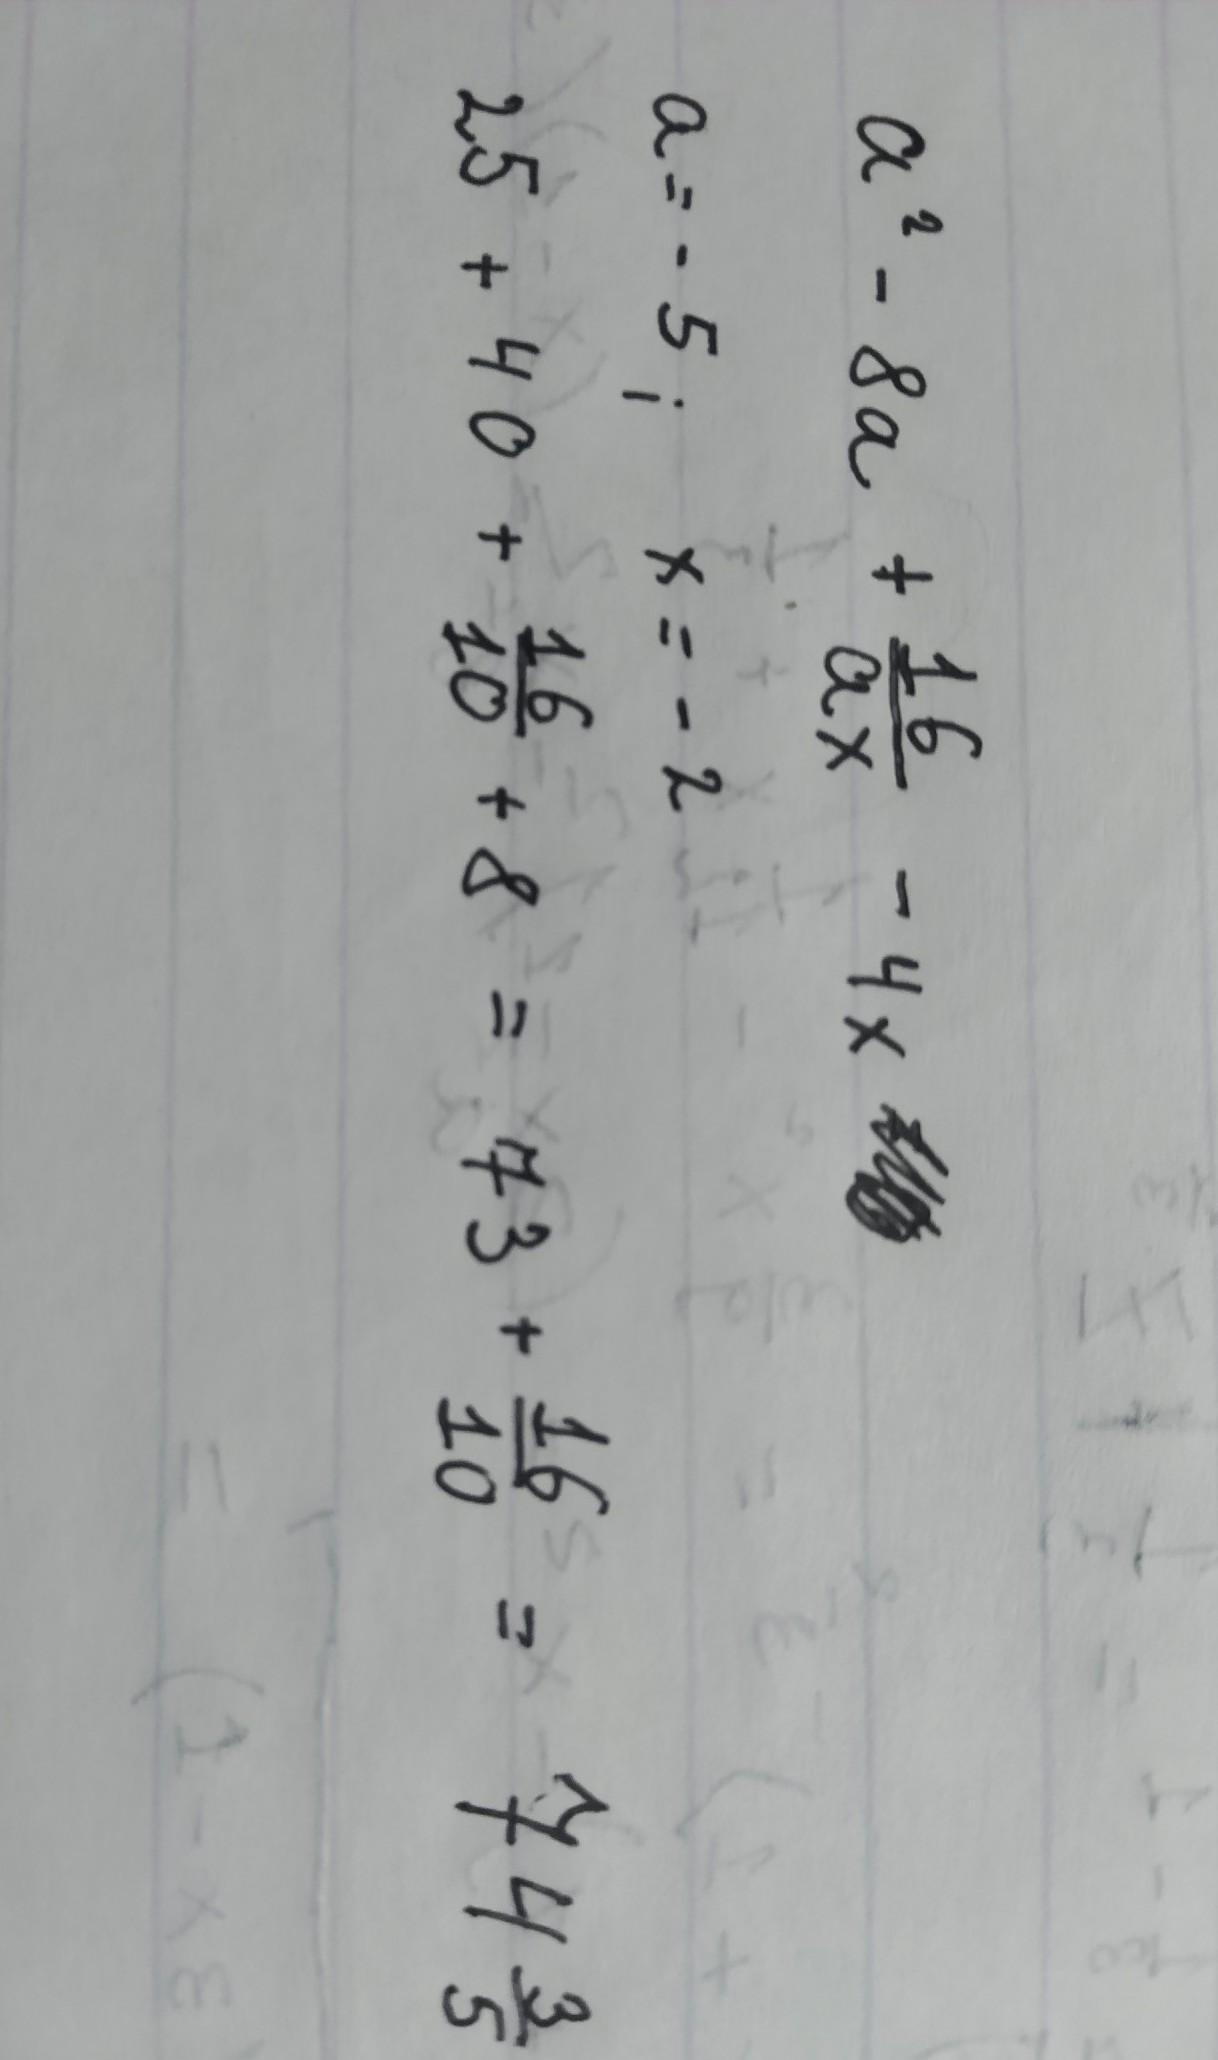 a² - 8a + 16/ax - 4x
a = -5; x = -2
25 + 40 + 16/10 + 8 = 73 + 16/10 = 74 3/5